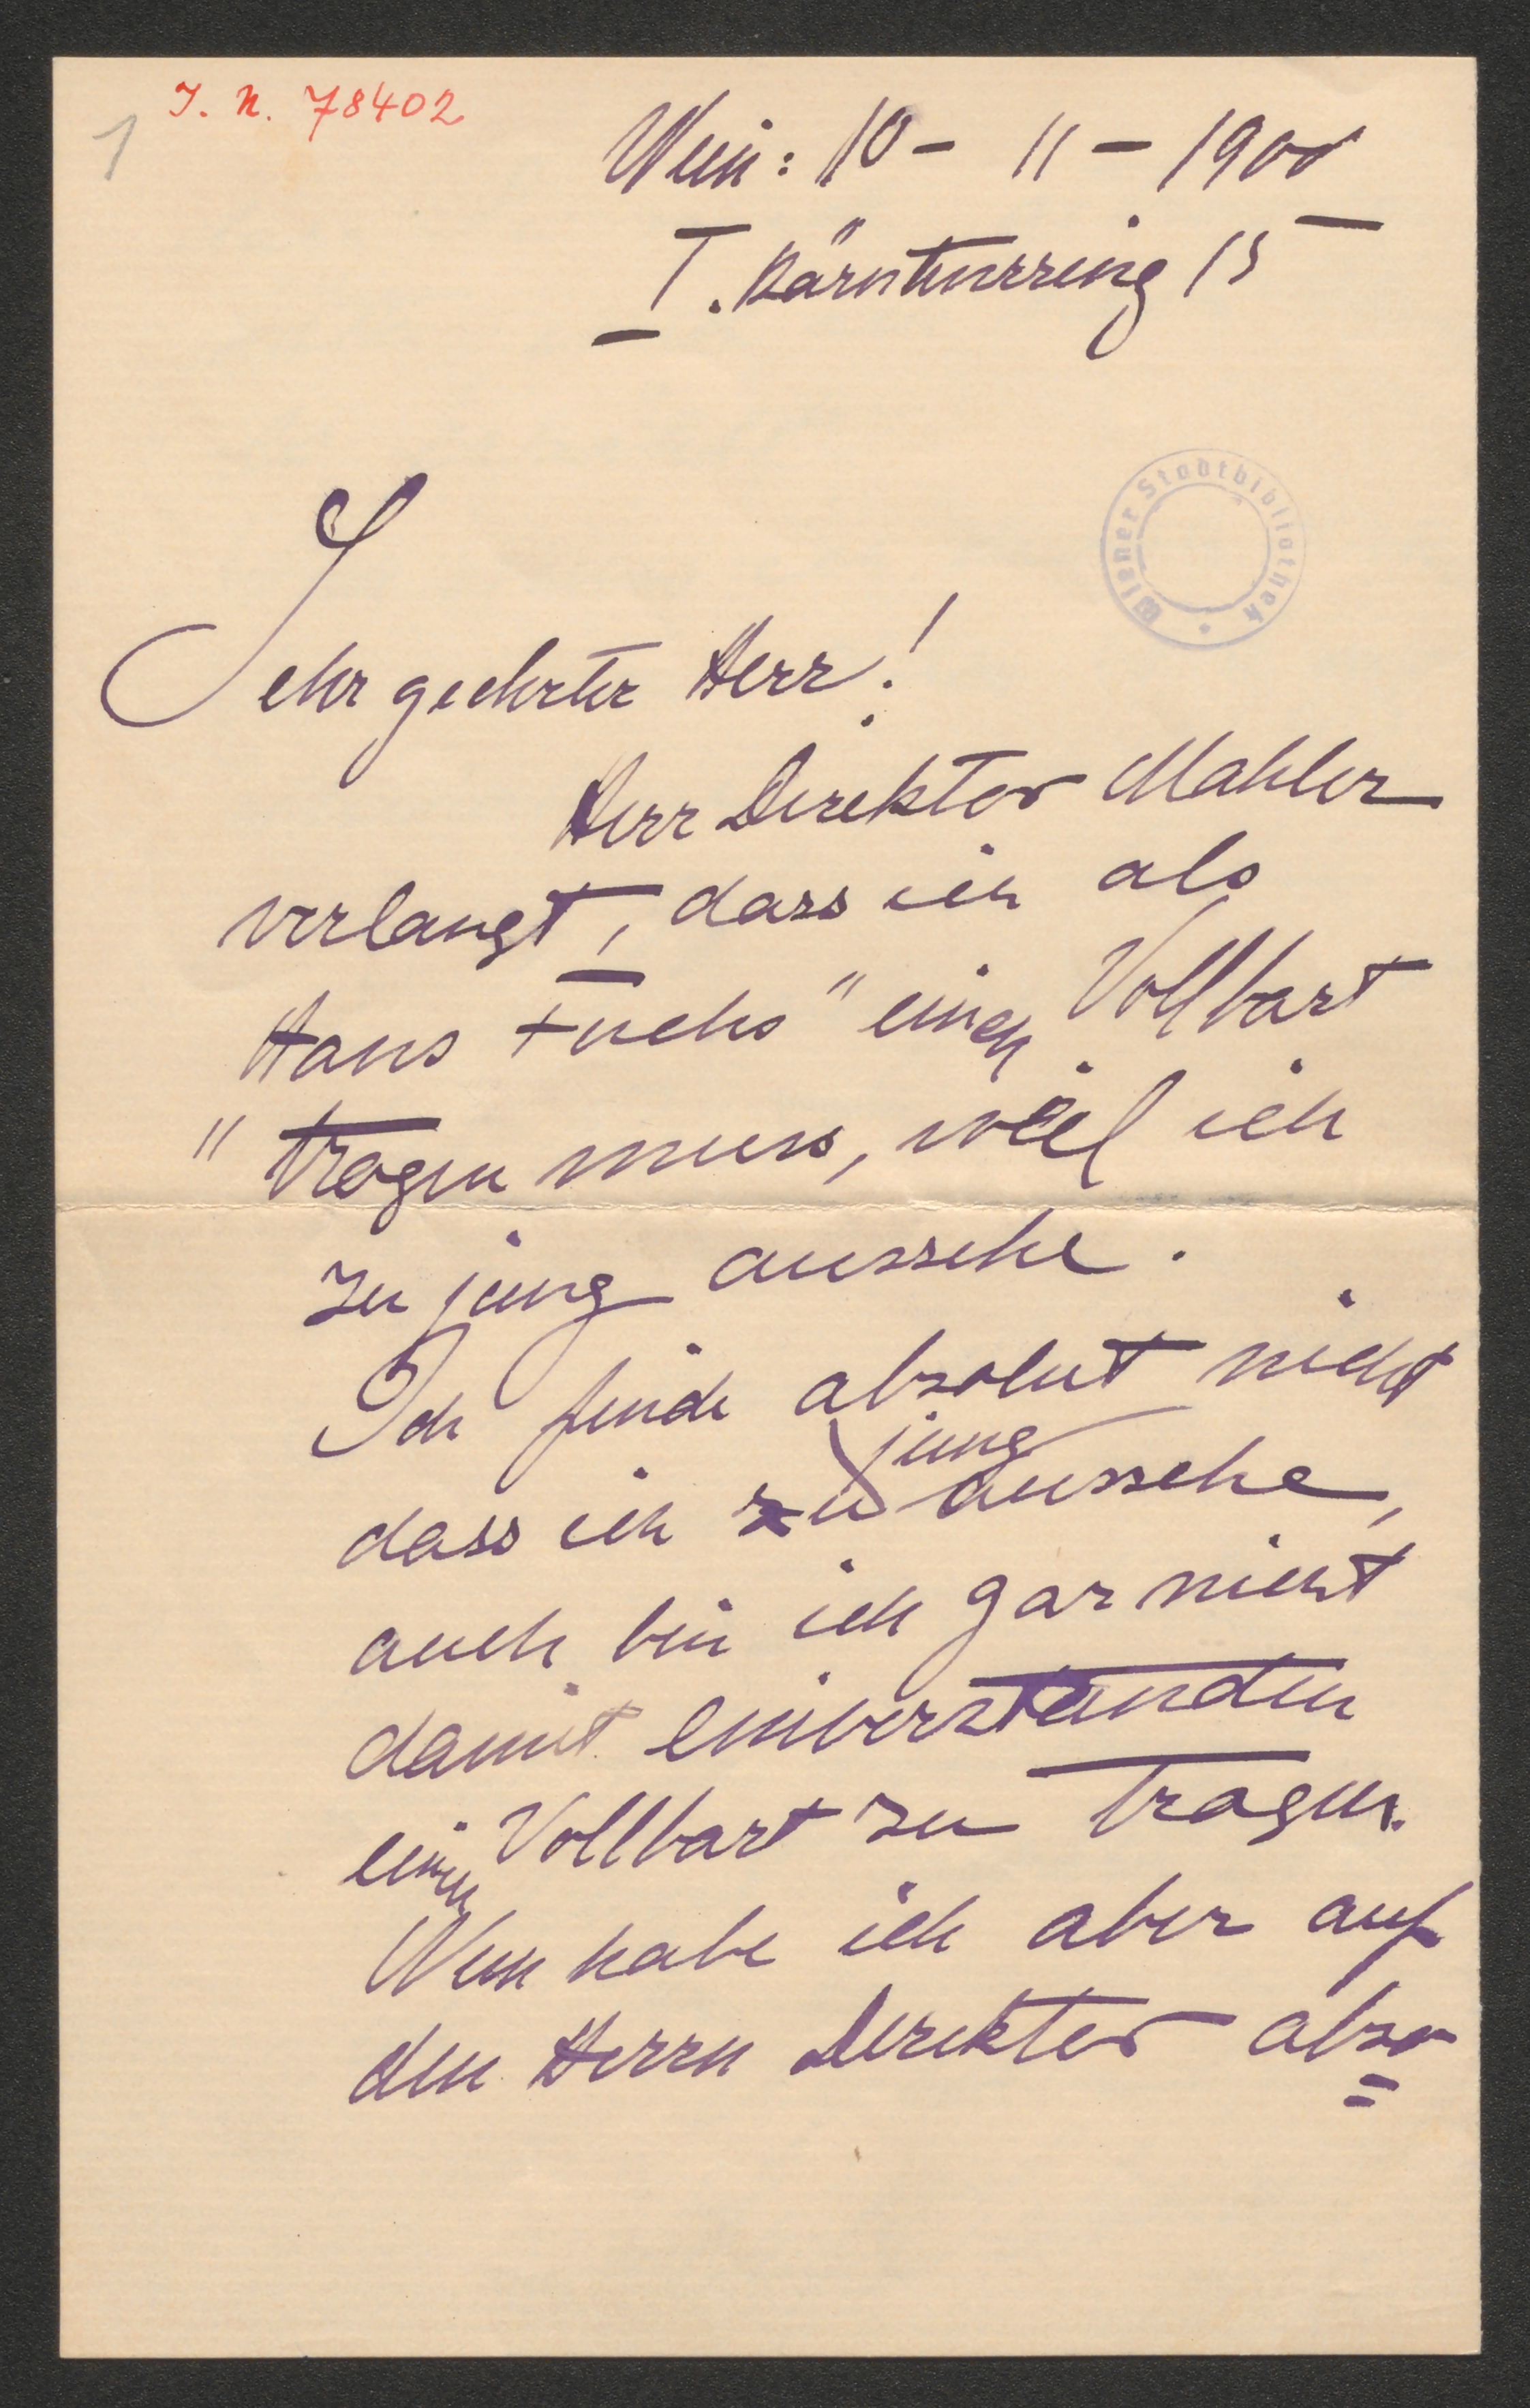 1
J. N. 78402
Wien: 10 - 11 - 1900
I. Kärntnerring 15
Wiener Stadtbibliothek
Sehr geehrter Herr!
Herr Direktor Mahler
verlangt, dass ich als
Hans Fuchs" einen Vollbart
" tragen muss, weil ich
zu jung aussehe.
Ich finde absolut nicht
dass ich zu jung aussehe,
auch bin ich gar nicht
damit einverstanden
einen Vollbart zu tragen.
Nun habe ich aber auf
den Herrn Direktor abso
=